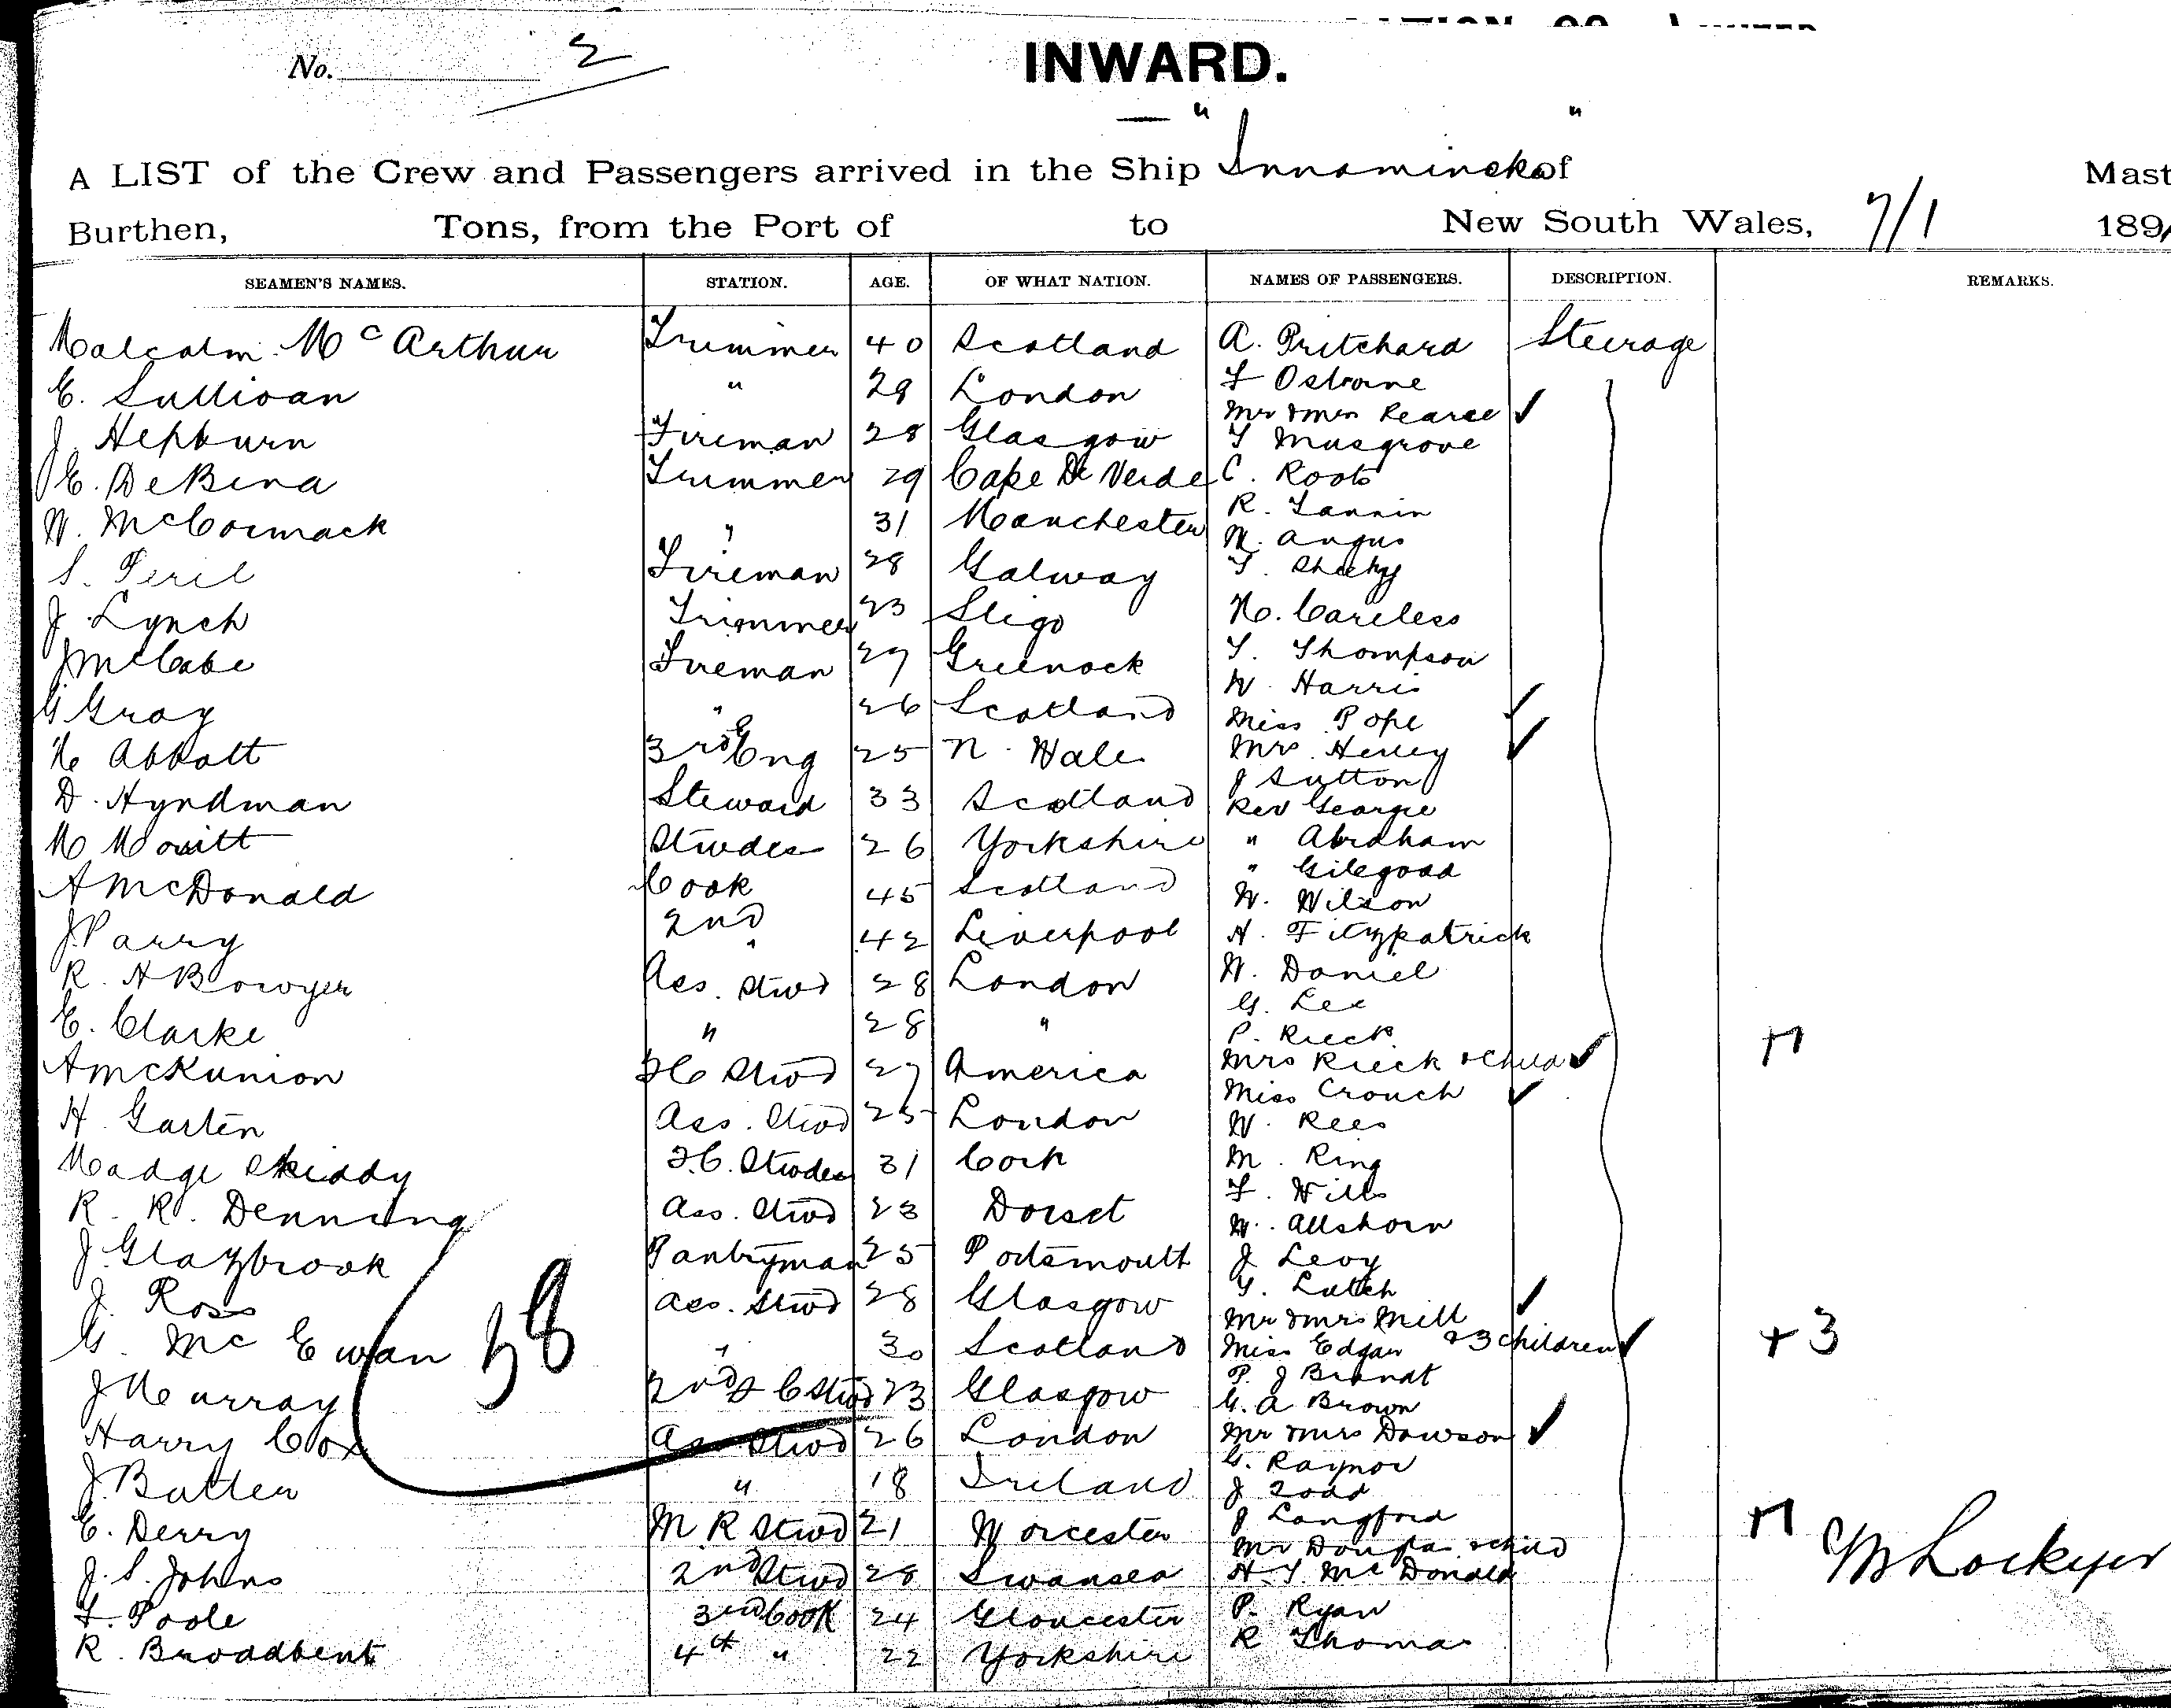 No. 2
INWARD.
"Innamincka" of
A LIST of the Crew and Passengers arrived in the Ship Mast
Burthen, Tons, from the Port of to New South Wales, 7/1 189
SEAMEN'S NAMES. STATION. AGE. OF WHAT NATION. NAMES OF PASSENGERS. DESCRIPTION. REMARKS.
Malcolm McArthur Trimmer 40 Scotland A. Pritchard Steerage
E. Sullivan " 29 London F Osborne
Mr & Mrs Pearce ✓
J Hepburn Fireman 28 Glasgow T Musgrove
E. DeBina Trimmer 29 Cape De Verde C. Roots
R. Tannin
W. McCormack " 31 Manchester W. Angus
S. Peril Fireman 28 Galway T. Sheehy
J Lynch Trimmer 23 Sligo H. Careless
J McCabe Fireman 27 Greenock T. Thompson
W. Harris
G Gray " 26 Scotland Miss Pope ✓
H Abbott 3rd Eng 25 N. Wales Mrs ✓
J Sutton
D. Hyndman Steward 33 Scotland Rev George
M Stwdes 26 Yorkshire " Abraham
" Gilegood
A McDonald Cook 45 Scotland W. Wilson
J Parry 2nd " 42 Liverpool H. Fitzpatrick
R. H Bowyer Ass. Stwd 28 London W. Daniel
G. Lee
E. Clarke " 28 " P. Rieck
A McKunion F C Stwd 27 America Mrs Rieck & Child ✓ +1
Miss Crouch ✓
H. Garten Ass. Stwd 25 London W. Rees
Madge Skiddy F.C. Stwdes 31 Cork M. Ring
F. Wills
R. R. Denning Ass. Stwd 23 Dorset W. Allshorn
J Glazbrook Pantryman 25 Portsmouth J Levy
J. Ross Ass. Stwd 28 Glasgow
Mr & Mrs Mill ✓
G. McEwan " 30 Scotland Miss Edgar & 3 children ✓ +3
38
P. J Brandt
J Murray 2nd F C Stwd 23 Glasgow G. A Brown
Harry Cox Ass Stwd 26 London Mr & Mrs Dawson ✓
G. Raynor
J. Butler " 18 Ireland J Todd
E. Derry M R Stwd 21 Worcester J Langford
Mr Douglas & child +1
J. S. Johns 2nd Stwd 28 Swansea H. T McDonald
Lockyer
F. Poole 3rd Cook 24 Gloucester P. Ryan
R. Broadbent 4th " 22 Yorkshire R Thomas